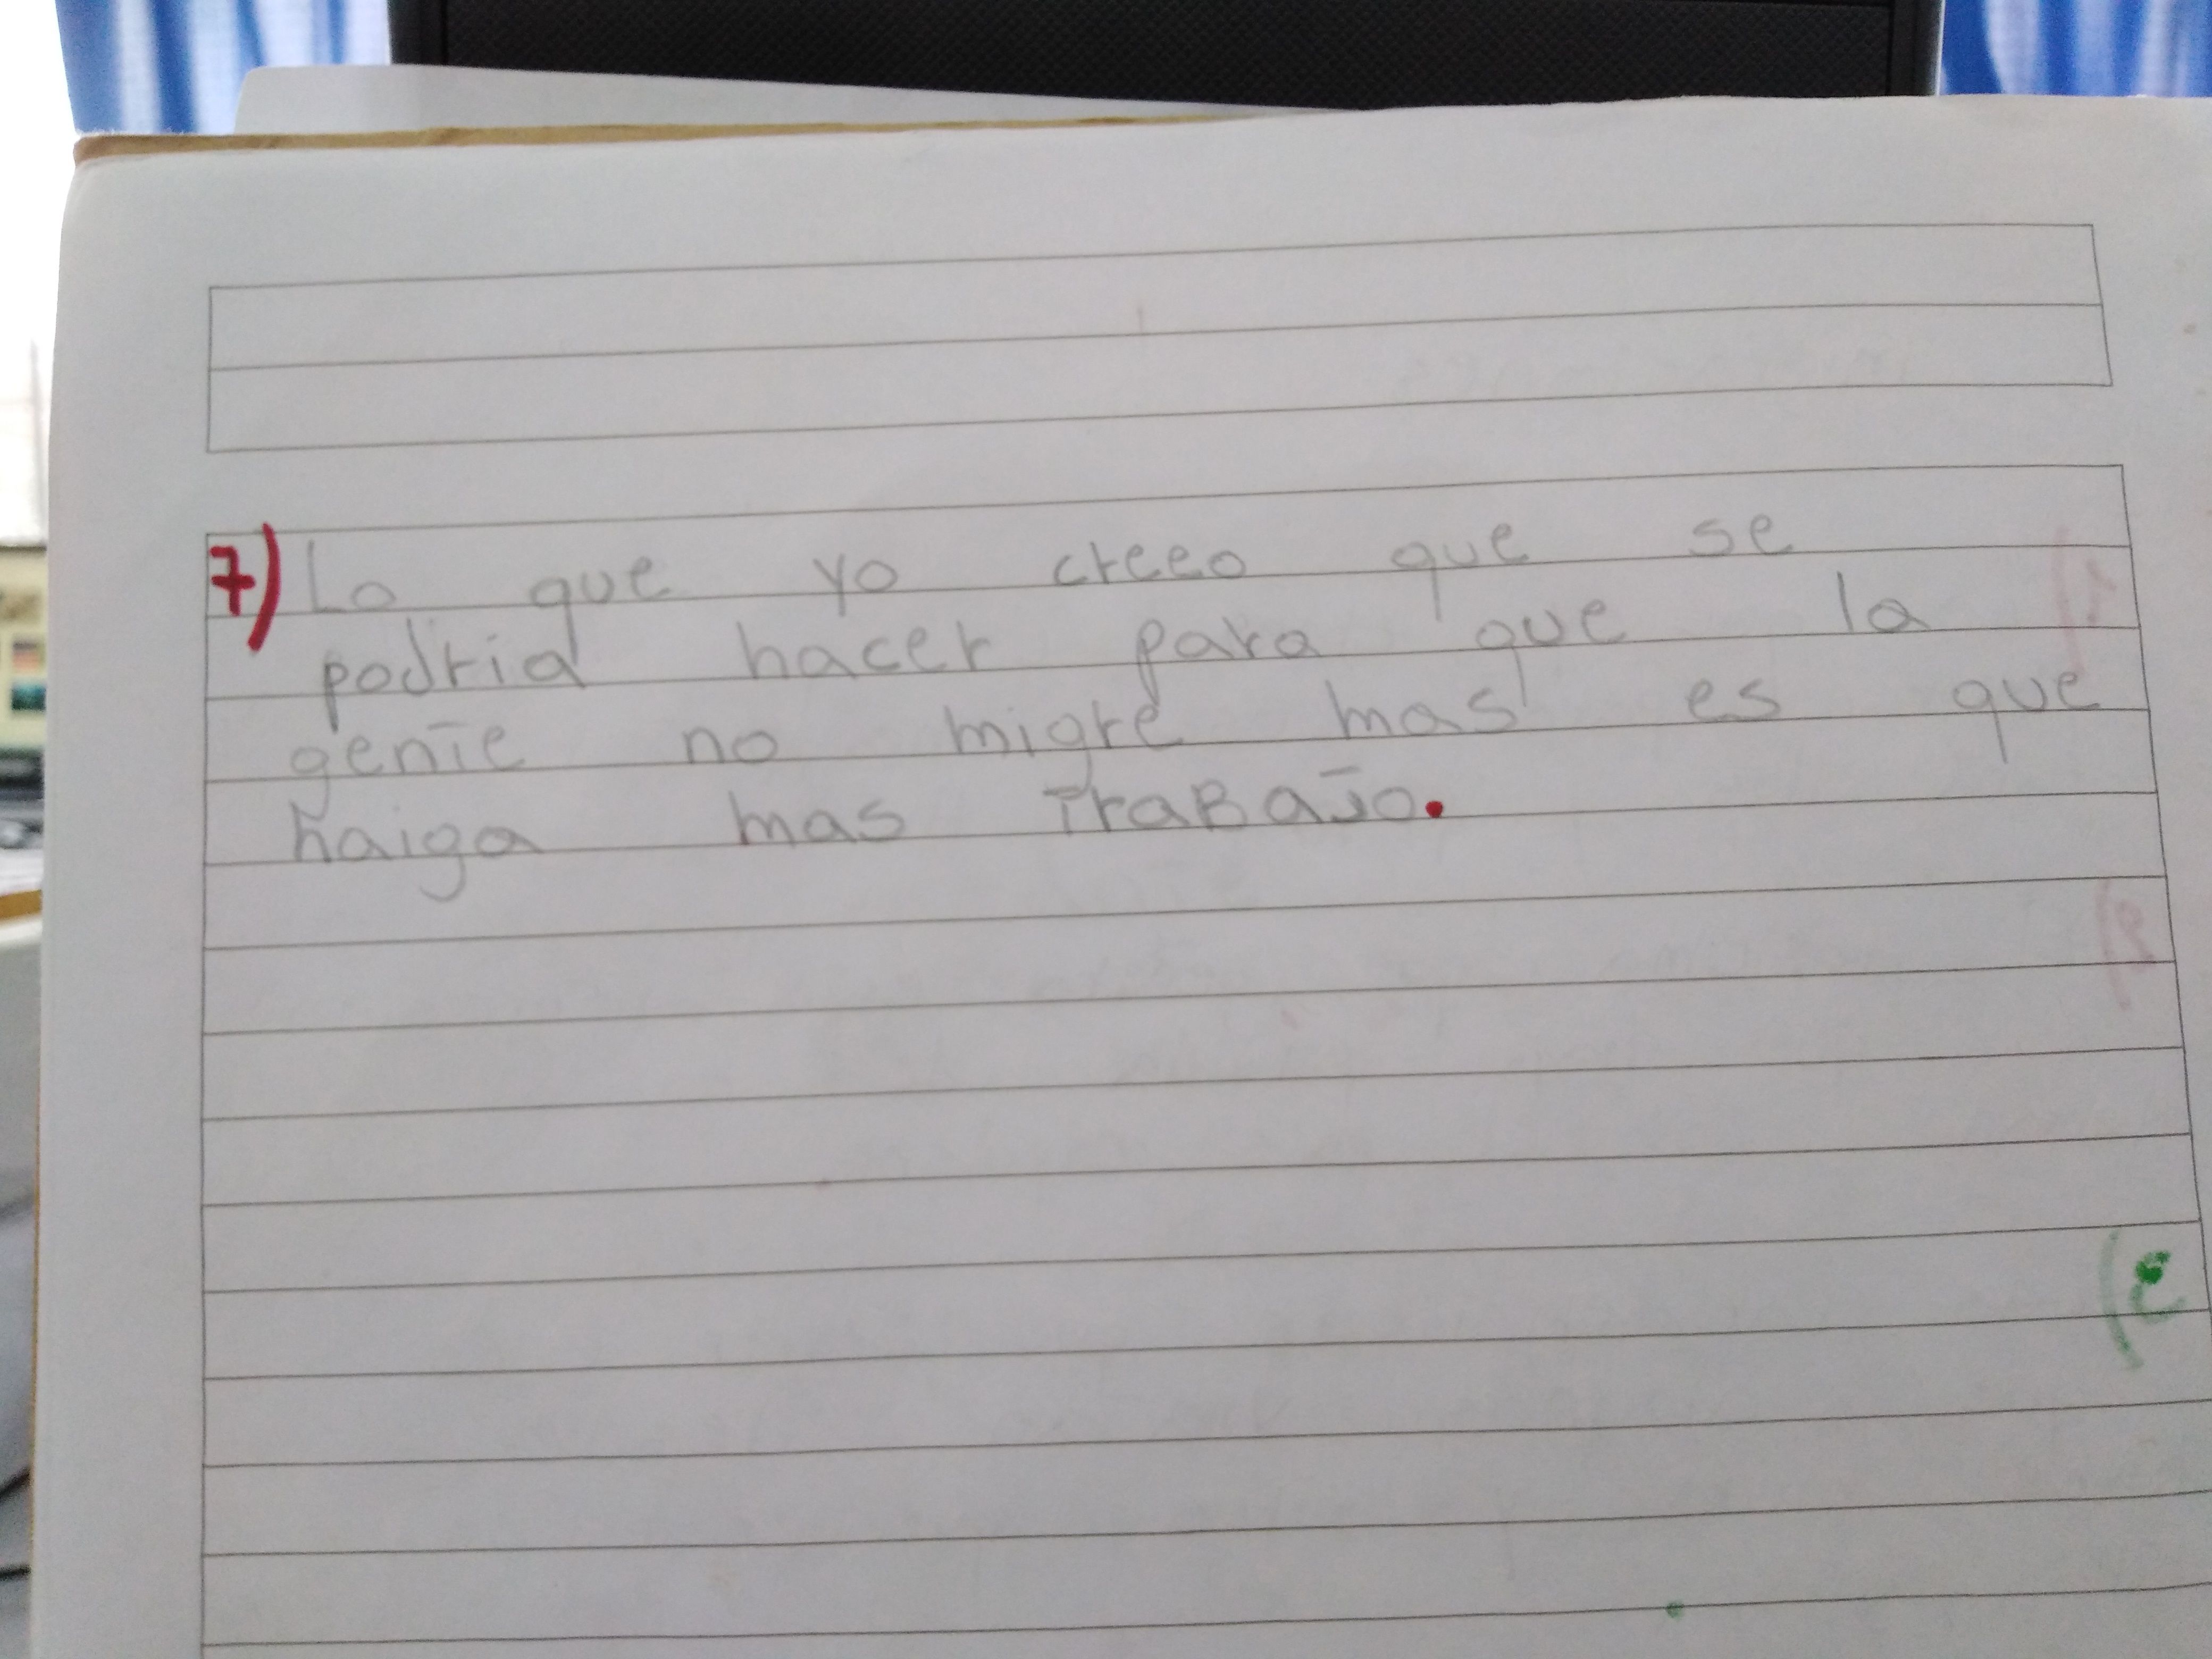 7) Lo que yo creeo que se
podria hacer para que la
gente no migre mas es que
haiga mas TraBaJo.